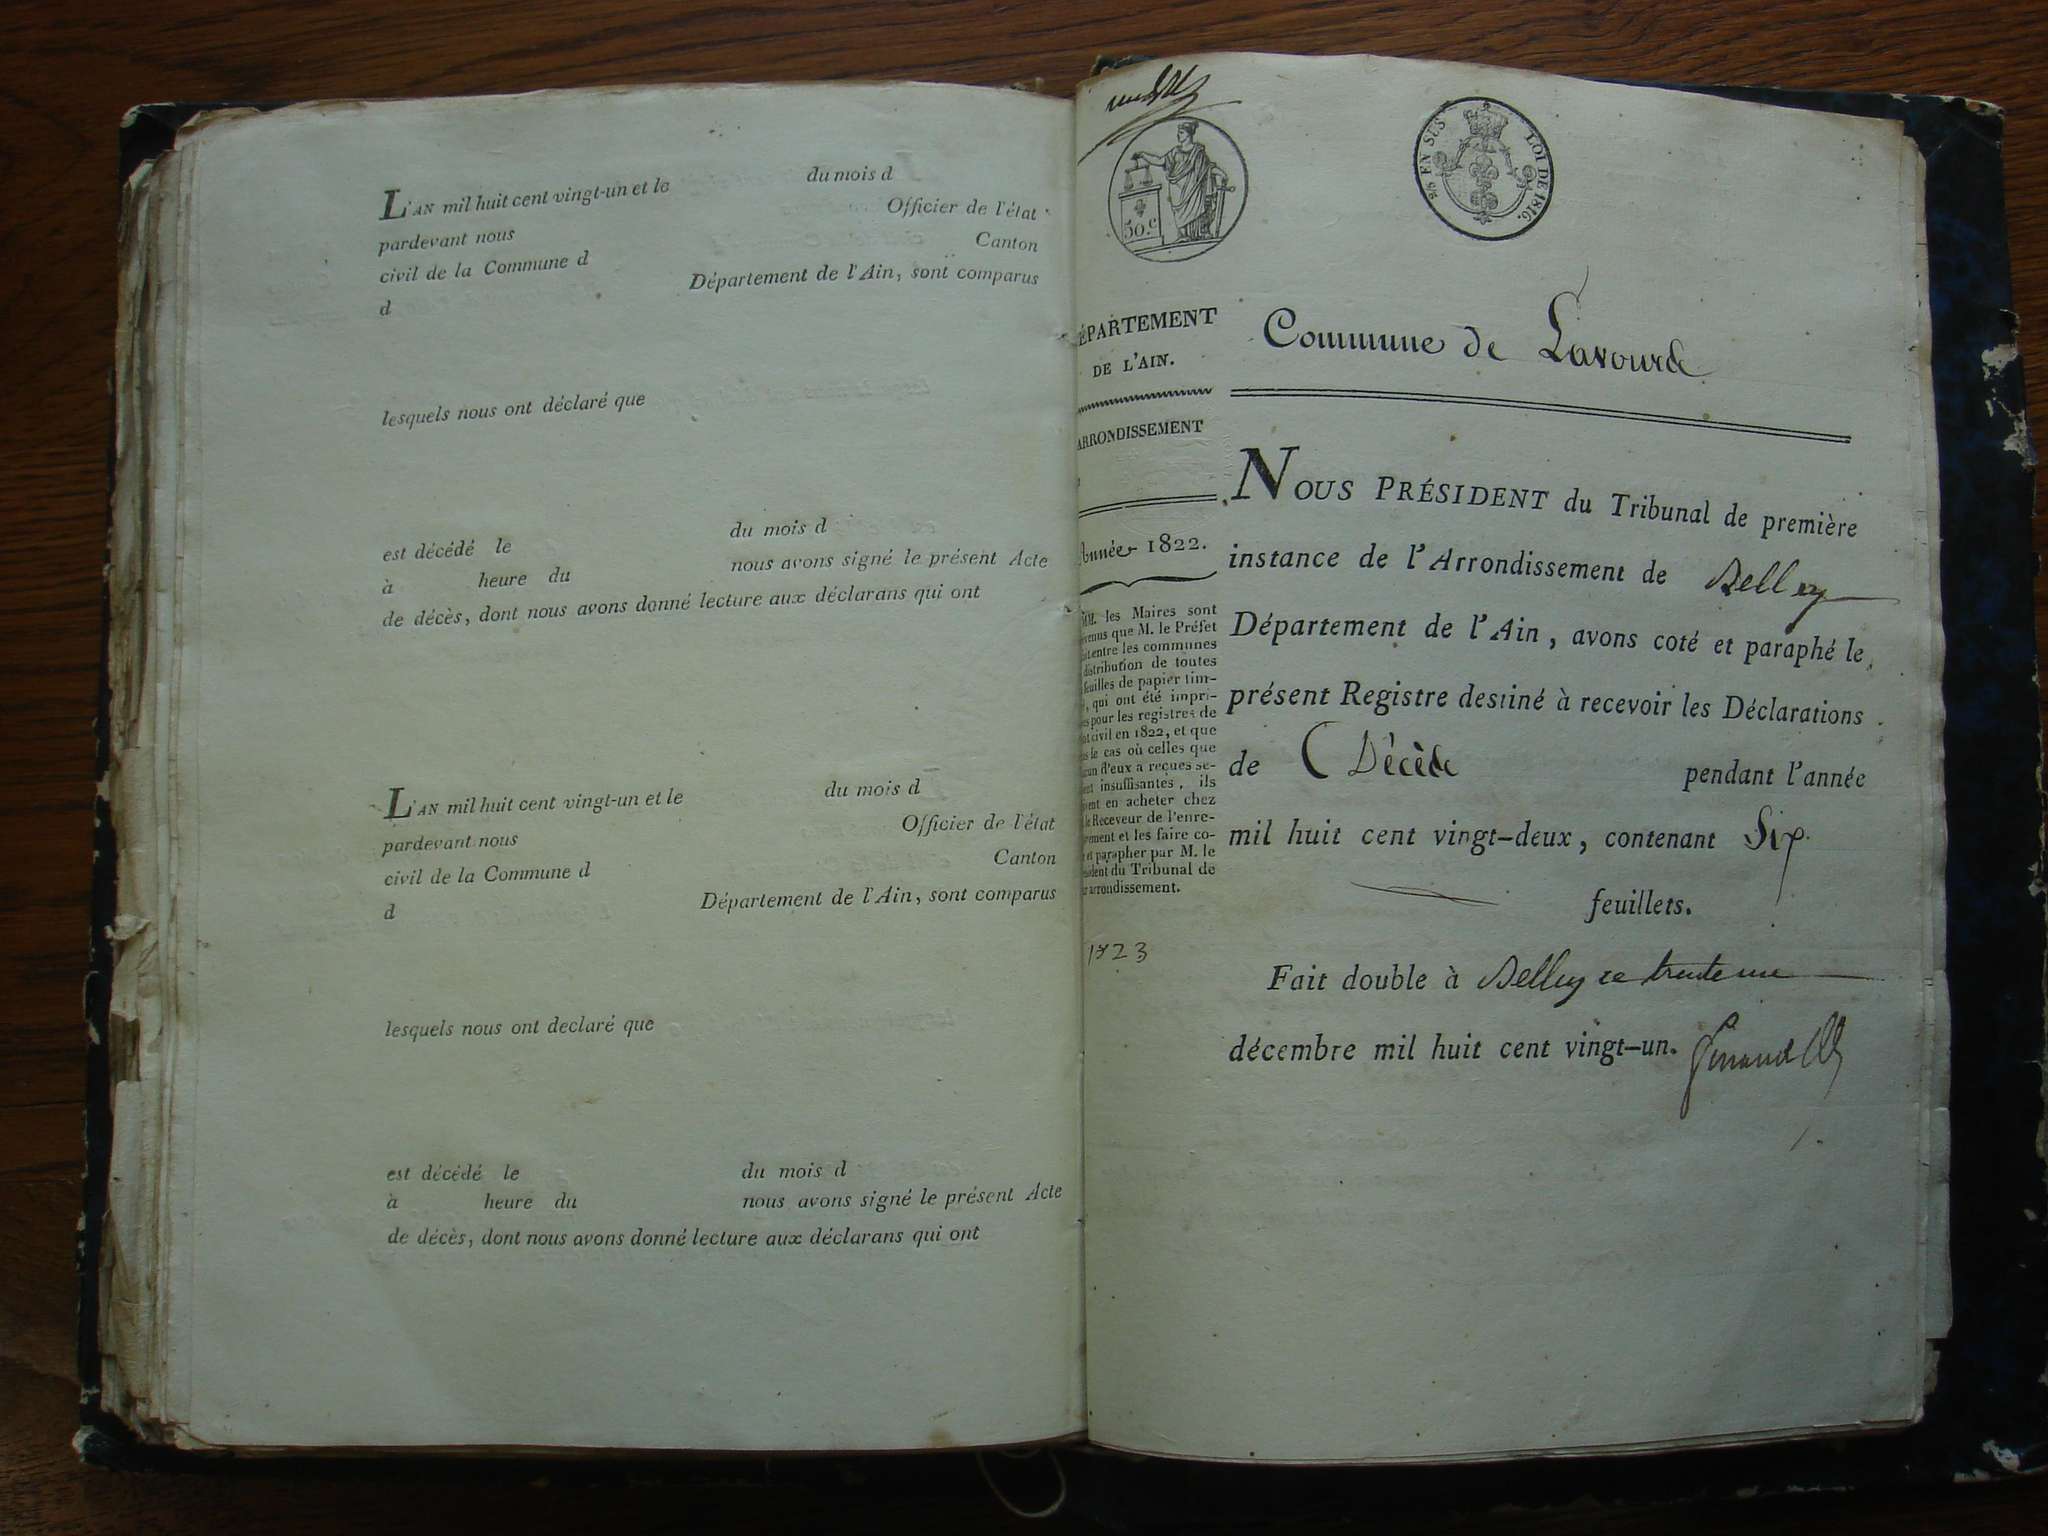 L'AN mil huit cent vingt-un et le du mois d
pardevant nous Officier de l'état
civil de la Commune d Canton
d Département de l'Ain, sont comparus
lesquels nous ont déclaré que
est décédé le du mois d
à heure du nous avons signé le présent Acte
de décès, dont nous avons donné lecture aux déclarans qui ont
L'AN mil huit cent vingt-un et le du mois d
pardevant nous Officier de l'état
civil de la Commune d Canton
d Département de l'Ain, sont comparus
lesquels nous ont declaré que
est décédé le du mois d
à heure du nous avons signé le présent Acte
de décès, dont nous avons donné lecture aux déclarans qui ont
50.c
25 EN SUS LOI DE 1816.
ÉPARTEMENT
DE L'AIN.
ARRONDISSEMENT
Année 1822.
MM. les Maires sont
venus que M. le Préfet
entre les communes
distribution de toutes
feuilles de papier tim-
, qui ont été impri-
pour les registres de
civil en 1822, et que
le cas où celles que
d'eux a reçues se-
insuffisantes, ils
en acheter chez
le Receveur de l'enre-
et les faire co-
et parapher par M. le
du Tribunal de
arrondissement.
1823
Commune de Lavours
NOUS PRÉSIDENT du Tribunal de première
instance de l'Arrondissement de Belley
Département de l'Ain, avons coté et paraphé le
présent Registre destiné à recevoir les Déclarations
de Décède pendant l'année
mil huit cent vingt-deux, contenant Six
feuillets.
Fait double à Belley ce trente un
décembre mil huit cent vingt-un.